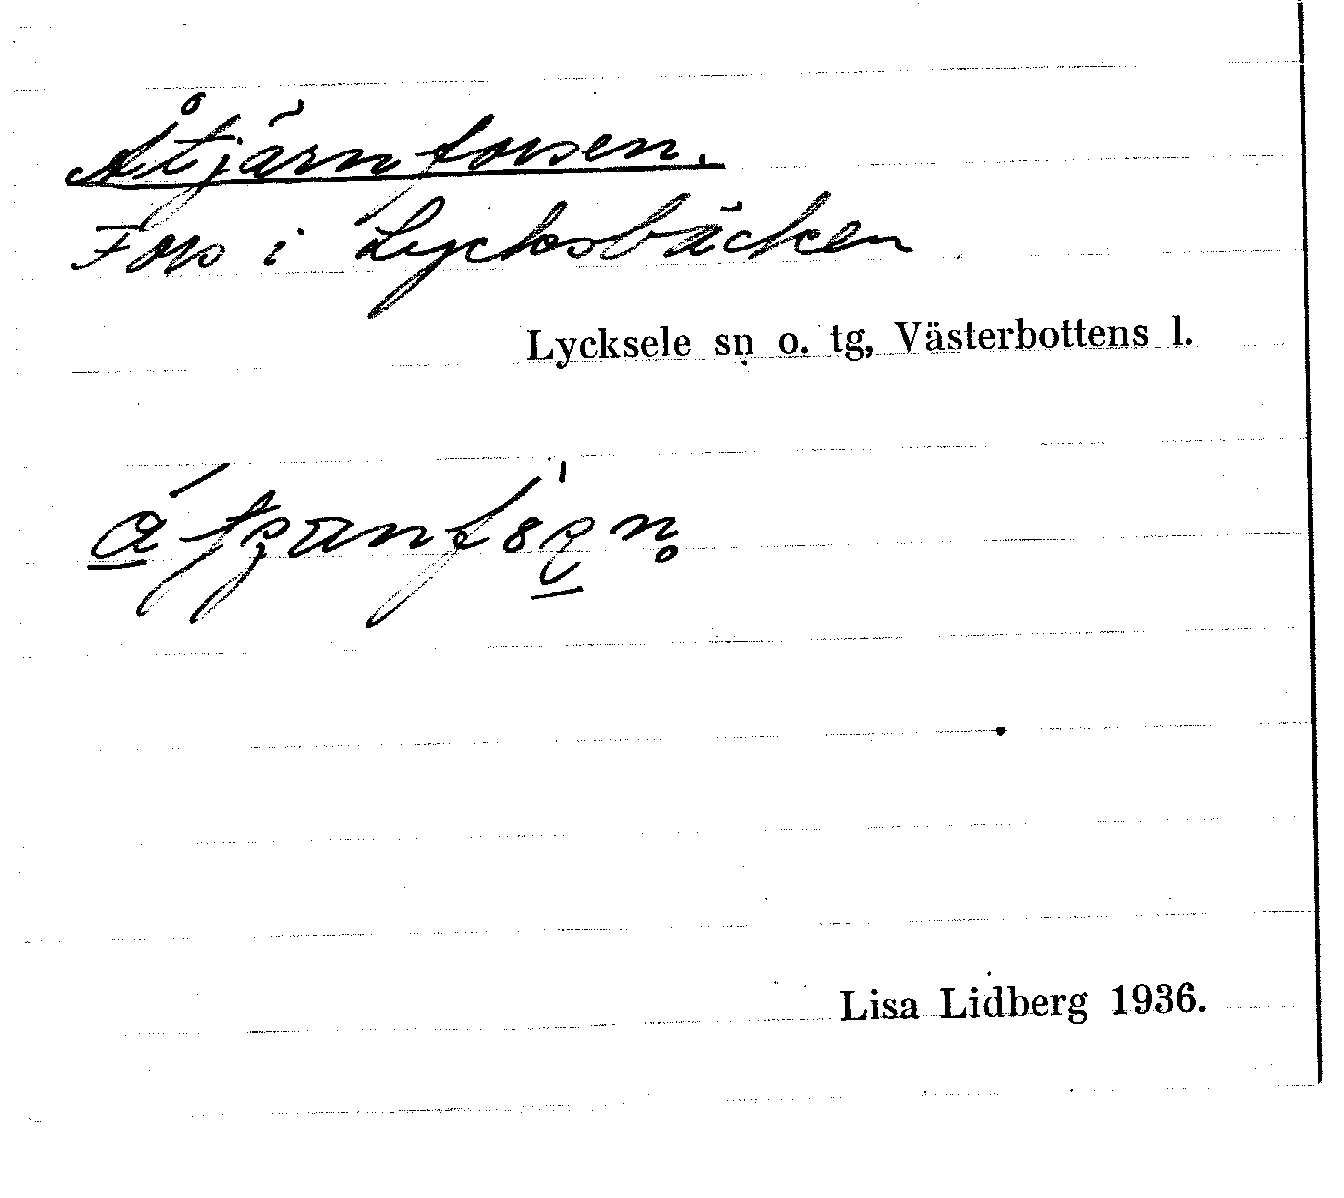 Åtjärnforsen.
Fors i Lycksbäcken
Lycksele sn o. tg, Västerbottens l.
Lisa Lidberg 1936.